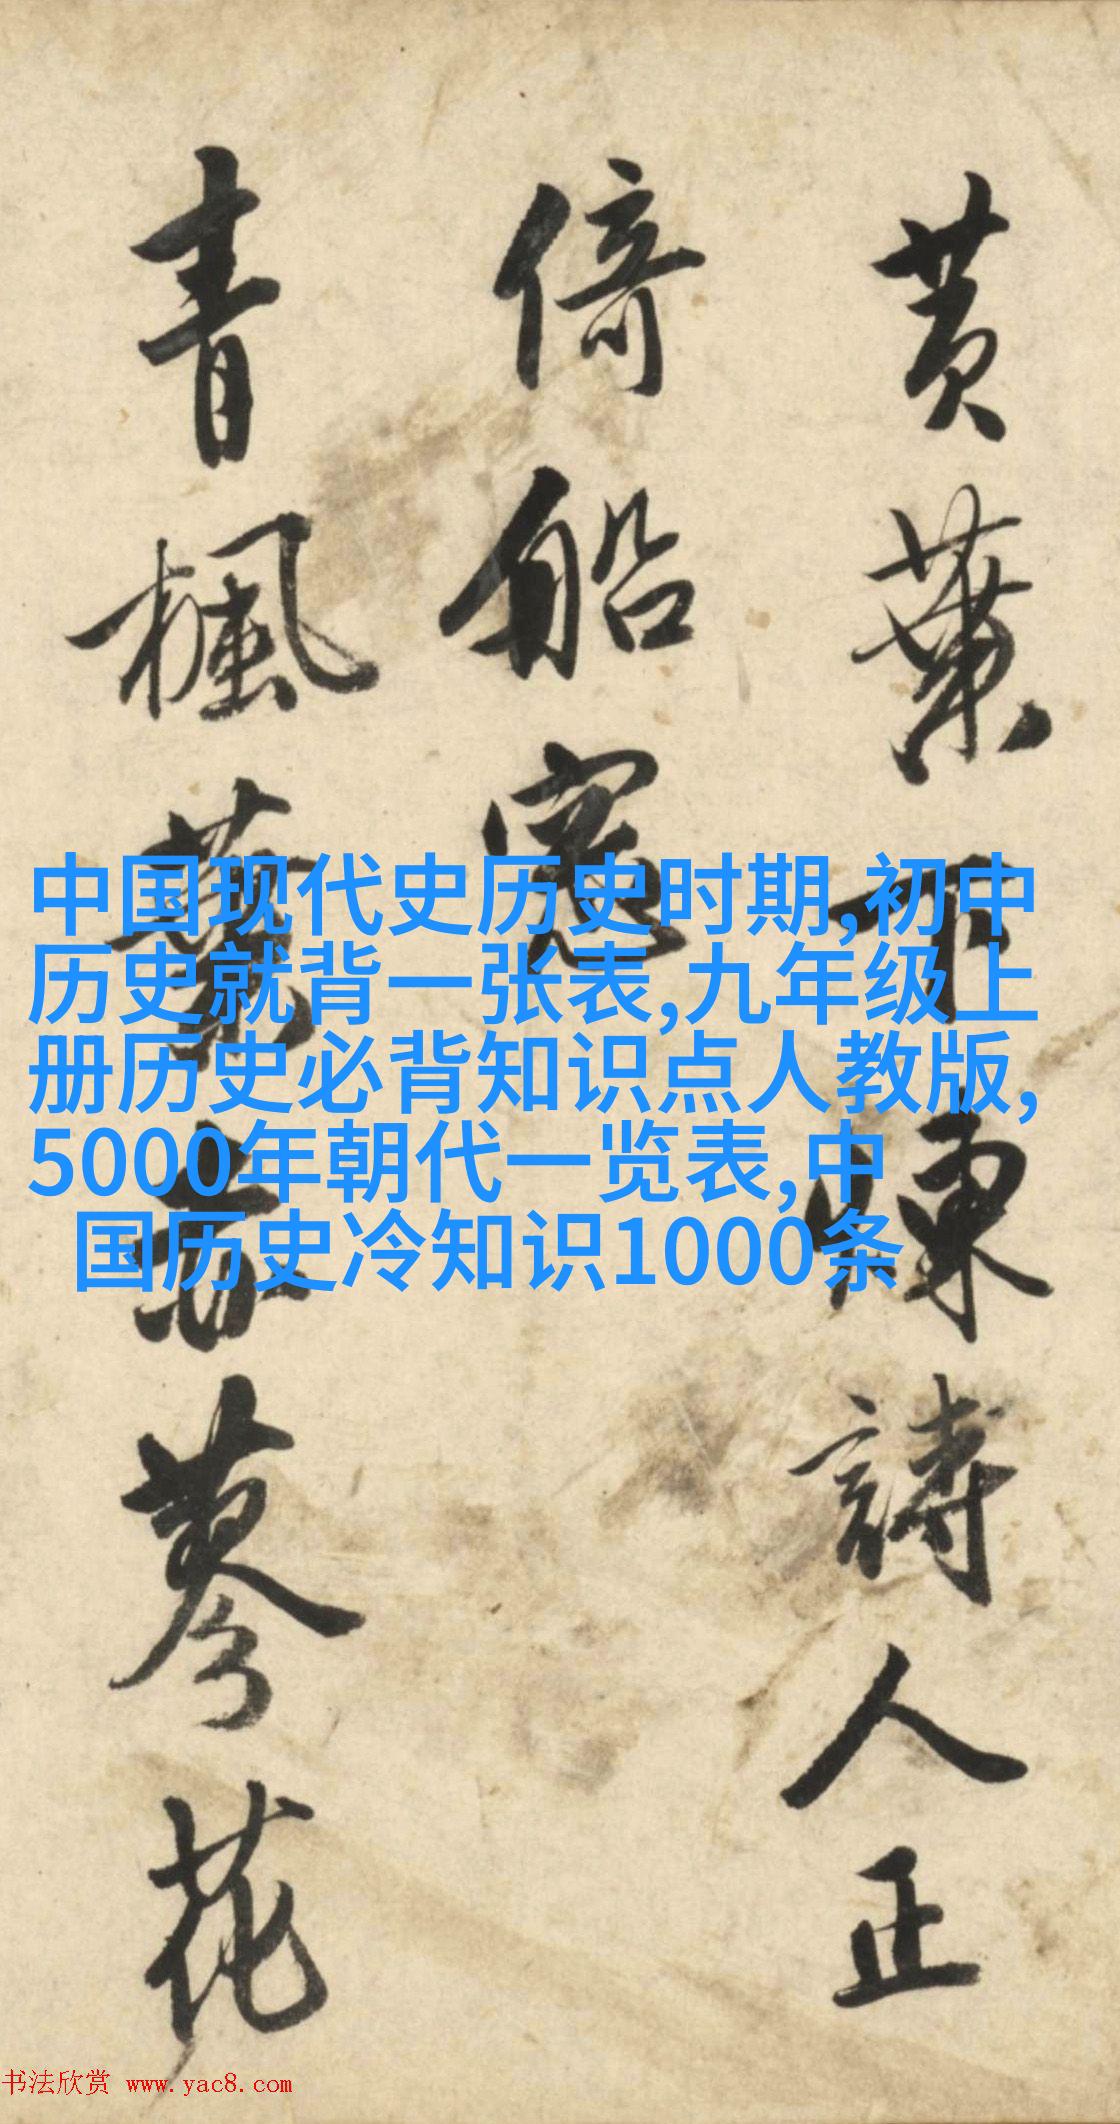 黄葉下煉詩人正
倚船窓
青楓葉赤蓼花
中国现代史历史时期,初中
历史就背一张表,九年级上
册历史必背知识点人教版,
5000年朝代一览表,中
国历史冷知识1000条
书法欣赏 www.yac8.com